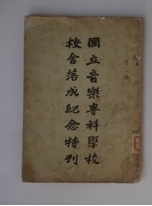 国立音樂專科學校
校舍落成紀念特刊